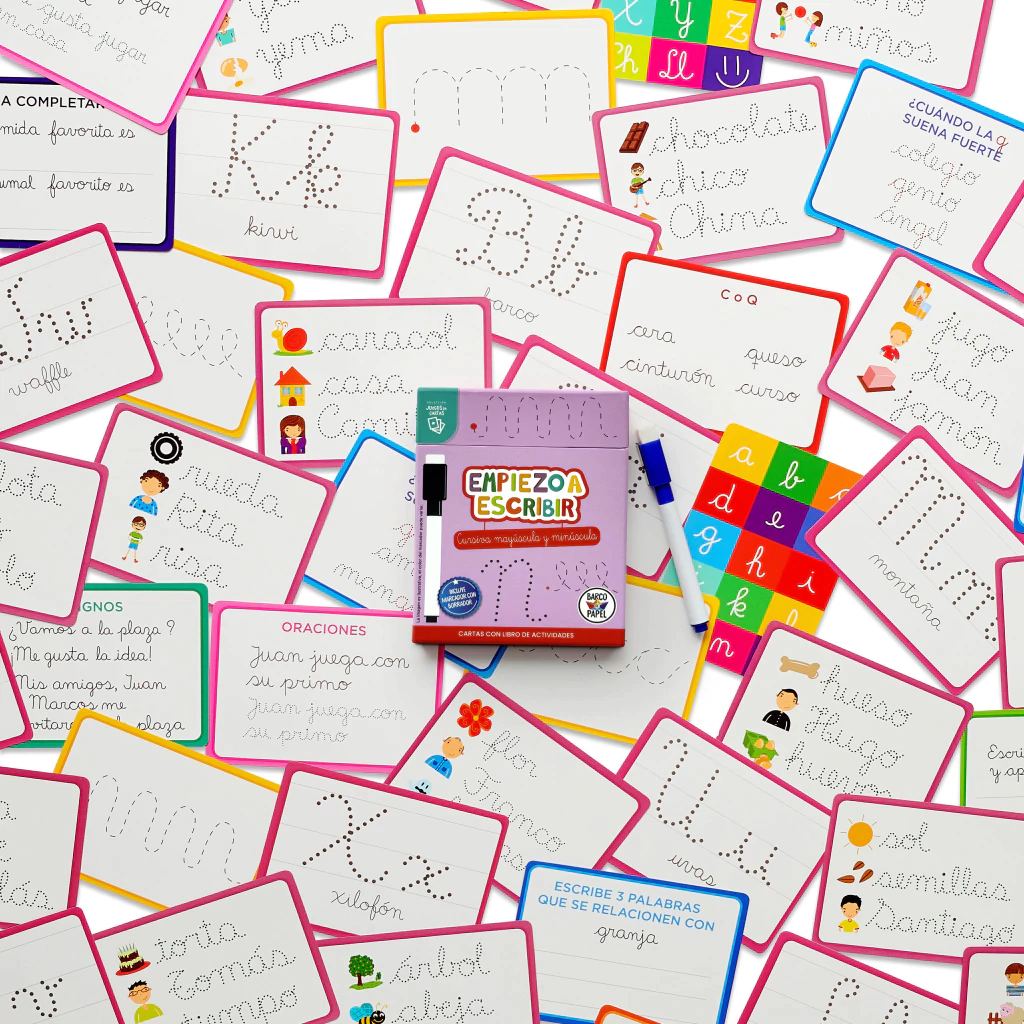 gusta jugar
casa
yema
m m m
X y Z
Ch Ll
niños
A COMPLETAR
favorita es
favorito es
K k
kiwi
chocolate
chico
China
¿CUÁNDO LA g
SUENA FUERTE
colegio
genio
ángel
B b
barco
C o Q
cera
queso
cinturón
curso
waffle
caracol
casa
jugo
Juan
jamón
COLECCIÓN
JUEGOS DE
CARTAS
EMPIEZO A
ESCRIBIR
Cursiva mayúscula y minúscula
n
INCLUYE
MARCADOR CON
BORRADOR
BARCO
DE
PAPEL
CARTAS CON LIBRO DE ACTIVIDADES
a b
d e
g h i
k
m
rueda
Rita
risa
M m
montaña
¿Vamos a la plaza?
¡Me gusta la idea!
Mis amigos, Juan
Marcos me
plaza
ORACIONES
Juan juega con
su primo
Juan juega con
su primo
hueso
Hugo
huevo
flor
Franco
U u
uvas
X x
xilofón
sol
semillas
Santiago
ESCRIBE 3 PALABRAS
QUE SE RELACIONEN CON
granja
torta
Tomás
tiempo
árbol
abeja